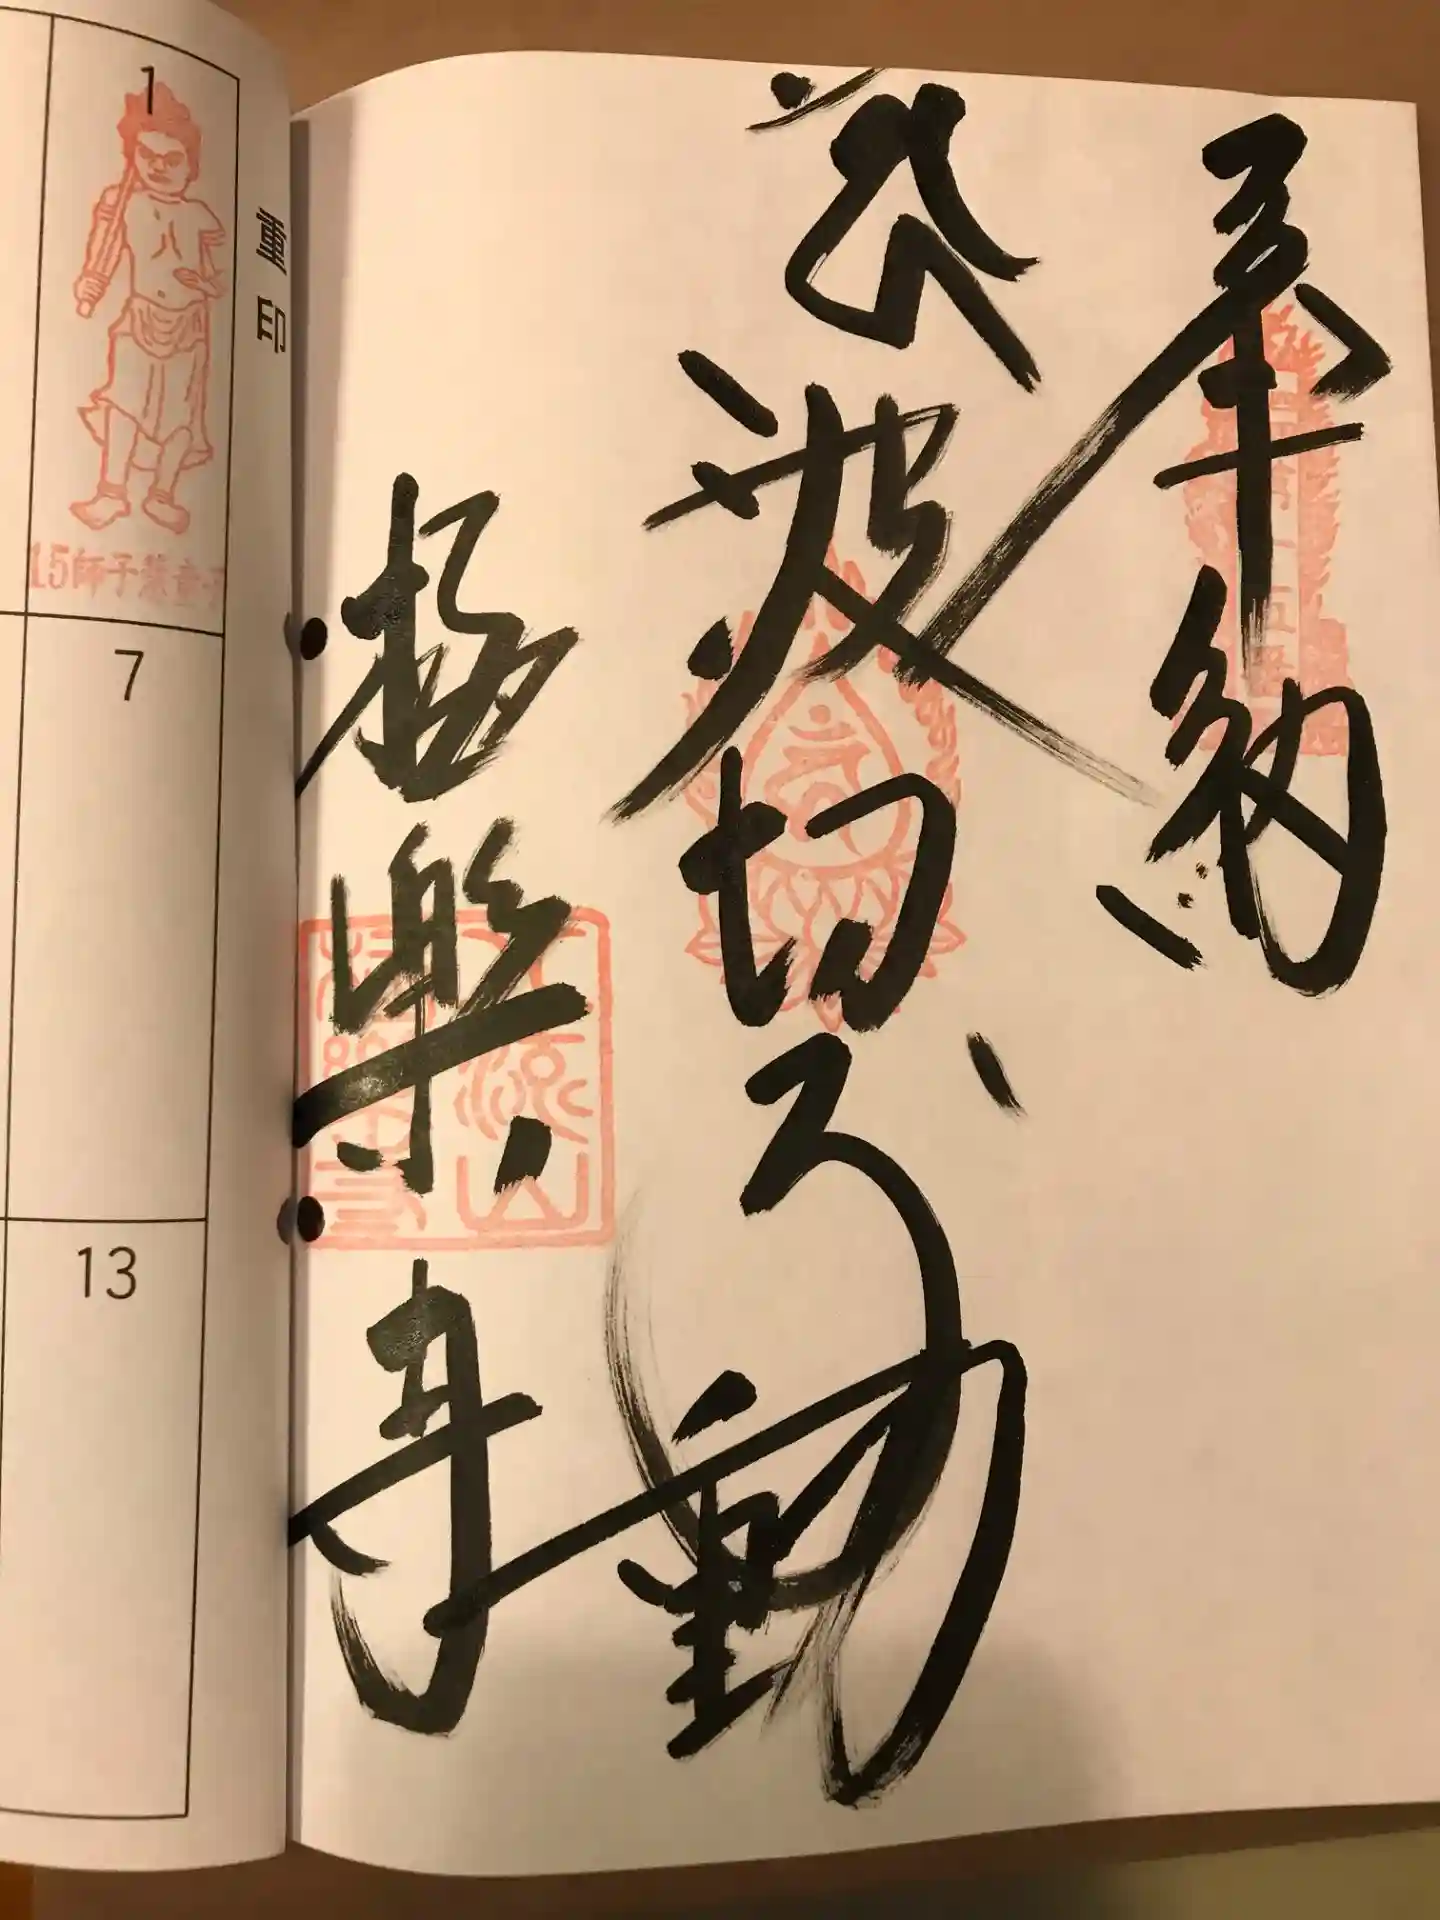 奉納
波切不動
極樂寺
重印
1
15師子慧童子
7
13